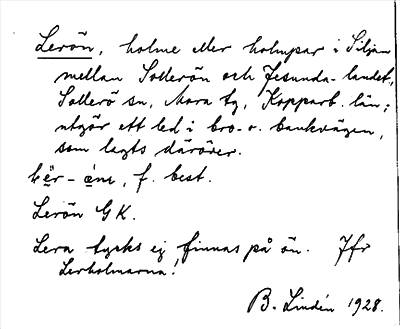 Lerön, holme eller holmpar i Siljan
mellan Sollerön och Gesunda-landet,
Sollerö sn, Mora tg, Kopparb. län;
utgör ett led i bro- o. bankvägen,
som lagts däröver.
lèr-, f. best.
Lerön GK.
Lera tycks ej finnas på ön. Jfr
Lerholmarna!
B. Lindén 1928.